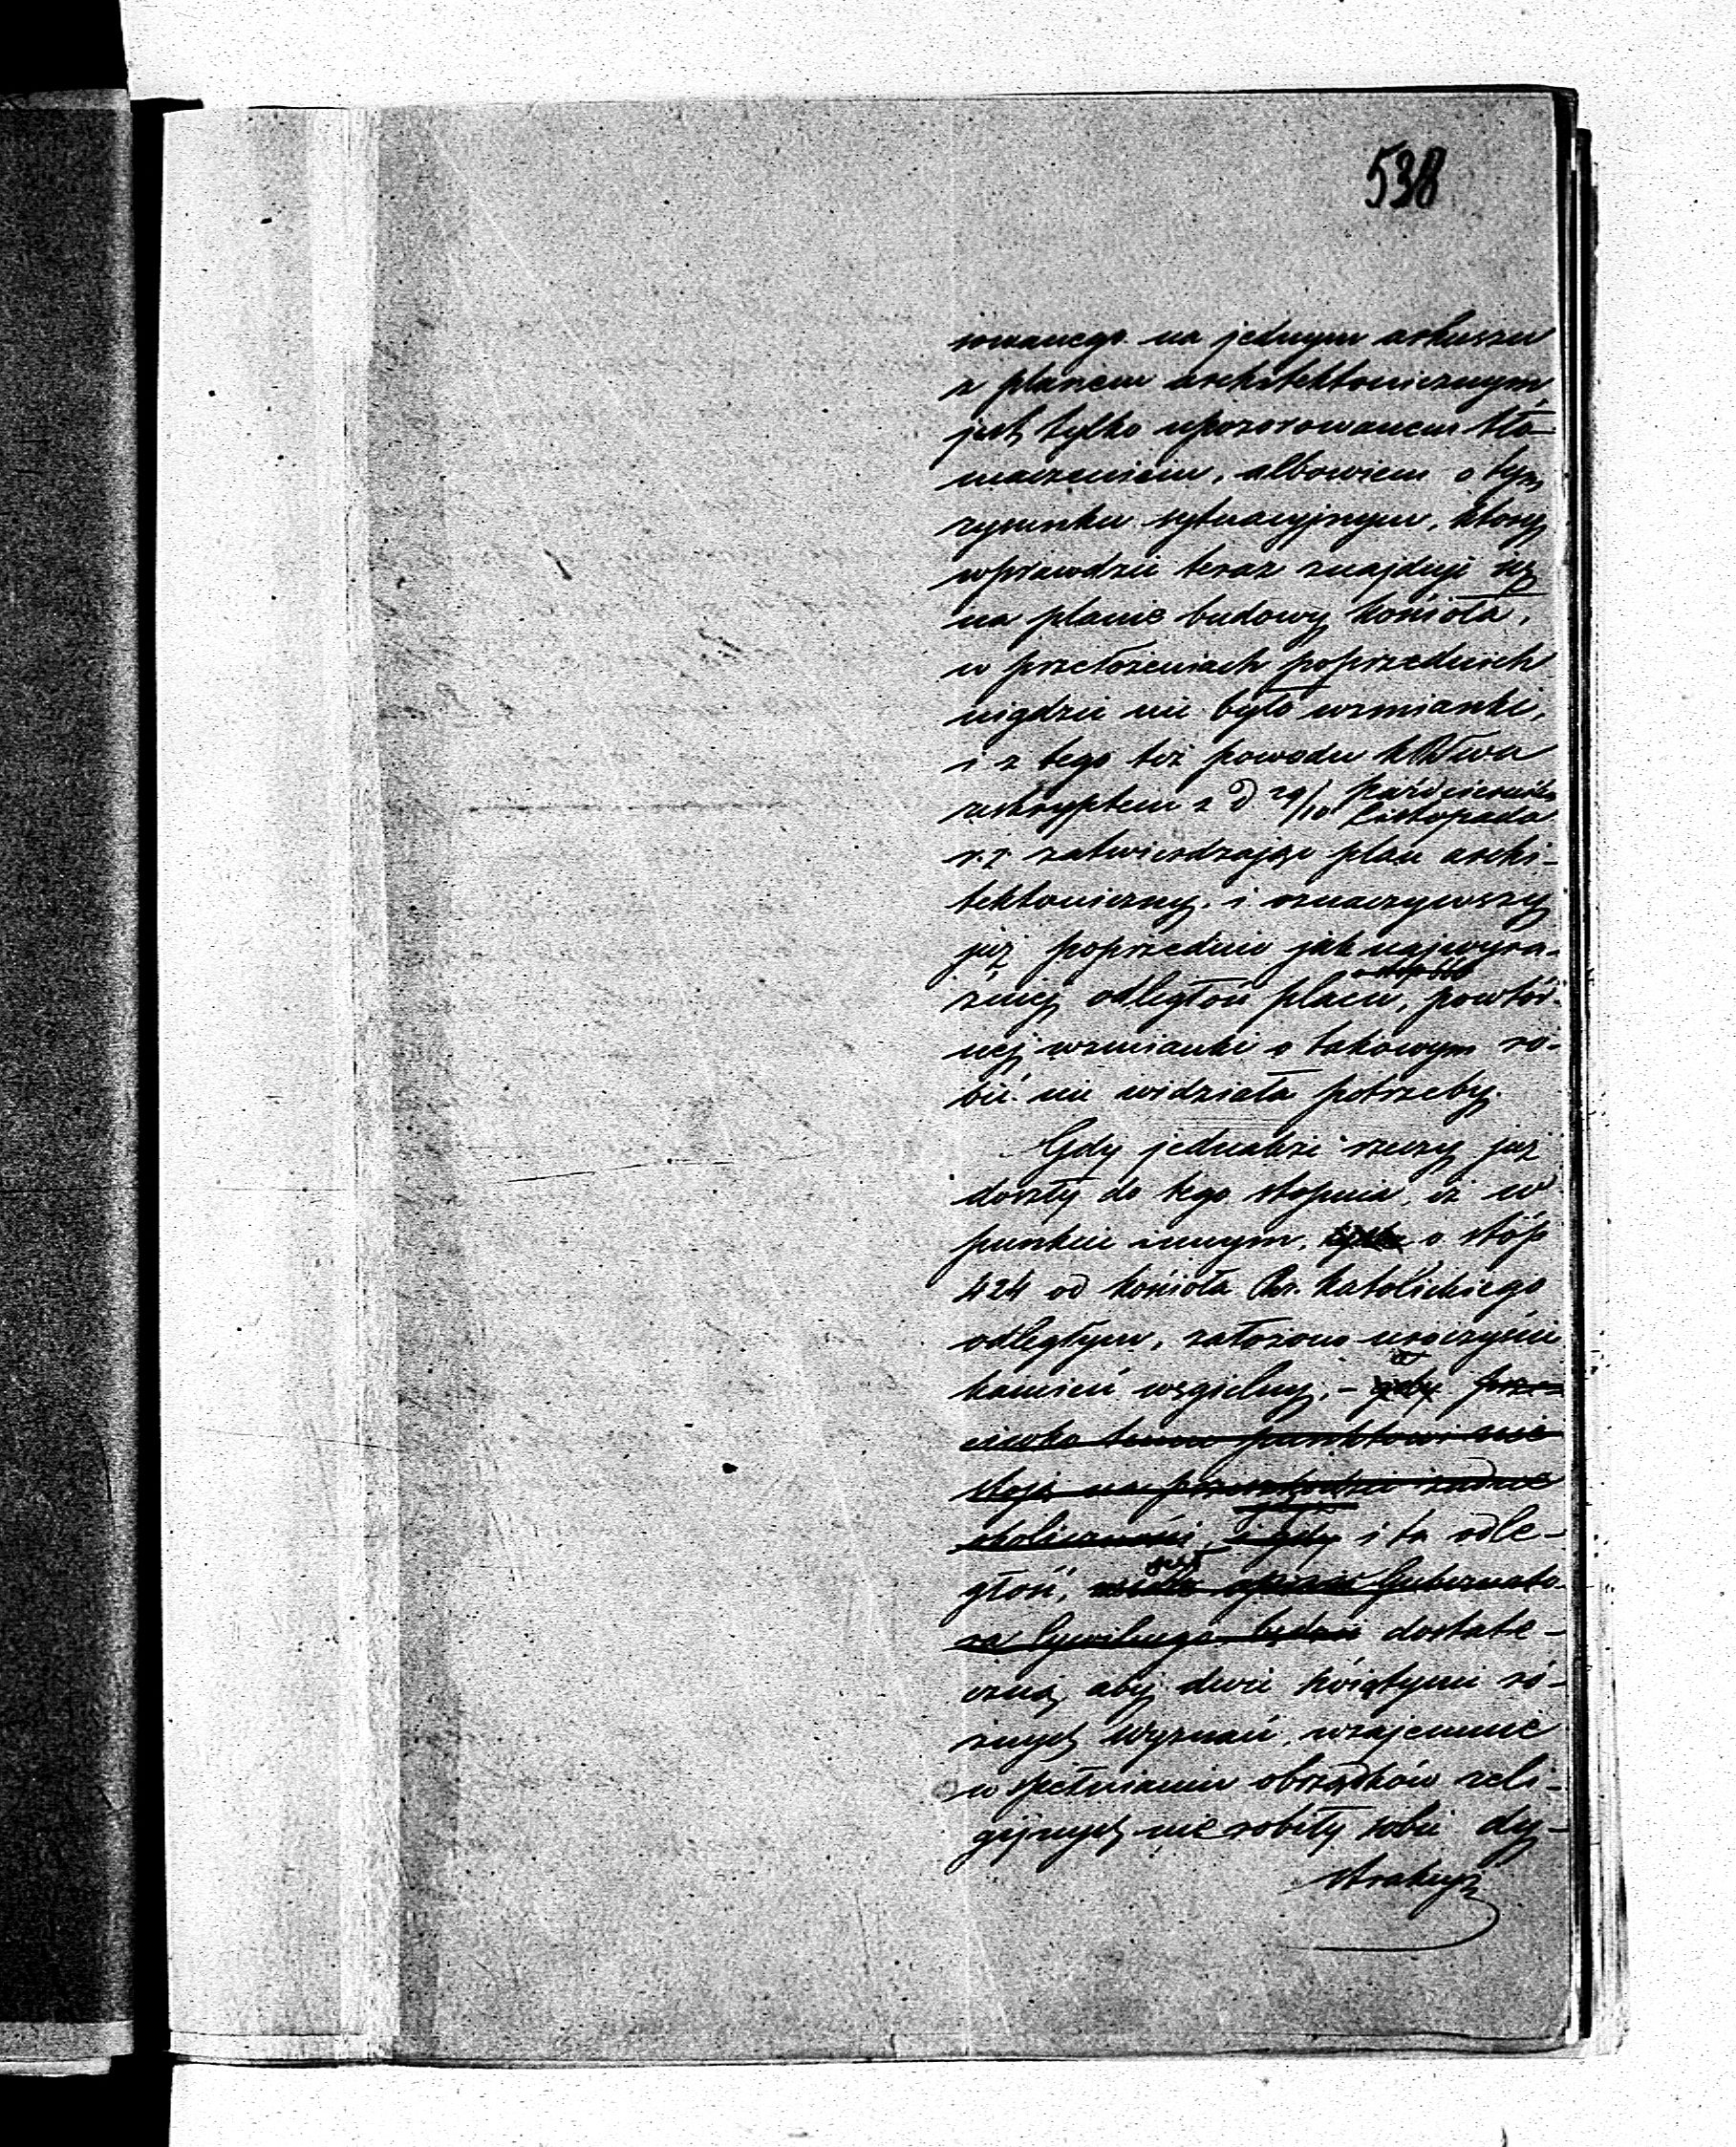 538
sowanego na jednym arkuszu
z planem architektonicznym,
jest tylko upozorowanem tło-
maczeniem, albowiem o tym
rysunku sytuacyjnym, który
wprawdzie teraz znajduje się
na planie budowy kościoła,
w przełożeniach poprzednich
nigdzie nie było wzmianki,
i z tego też powodu
reskryptem z d 29/10 Października Listopada
r. z. zatwierdzając plan archi-
tektoniczny, i oznaczywszy
już poprzednio jak najwyra-
źniej odległość placu, powtór-
nej wzmianki o takowym ro-
bić nie widziała potrzeby.
Gdy jednakże rzeczy już
doszły do tego stopnia, iż w
punkcie innym, o stóp
424 od kościoła Rz. Katolickiego
odległym, założono uroczyście
kamień węgielny, - gdy prze-
ciwko temu punktowi nie
stoją na przeszkodzie żadne
okoliczności, a gdy i ta odle-
głość, jest Gubernato-
ra Cywilnego będzie dostate-
czną, aby dwie świątynie ró-
żnych wyznań, wzajemnie
w spełnianiu obrządków reli-
gijnych nie robiły sobie dy-
strakcyi